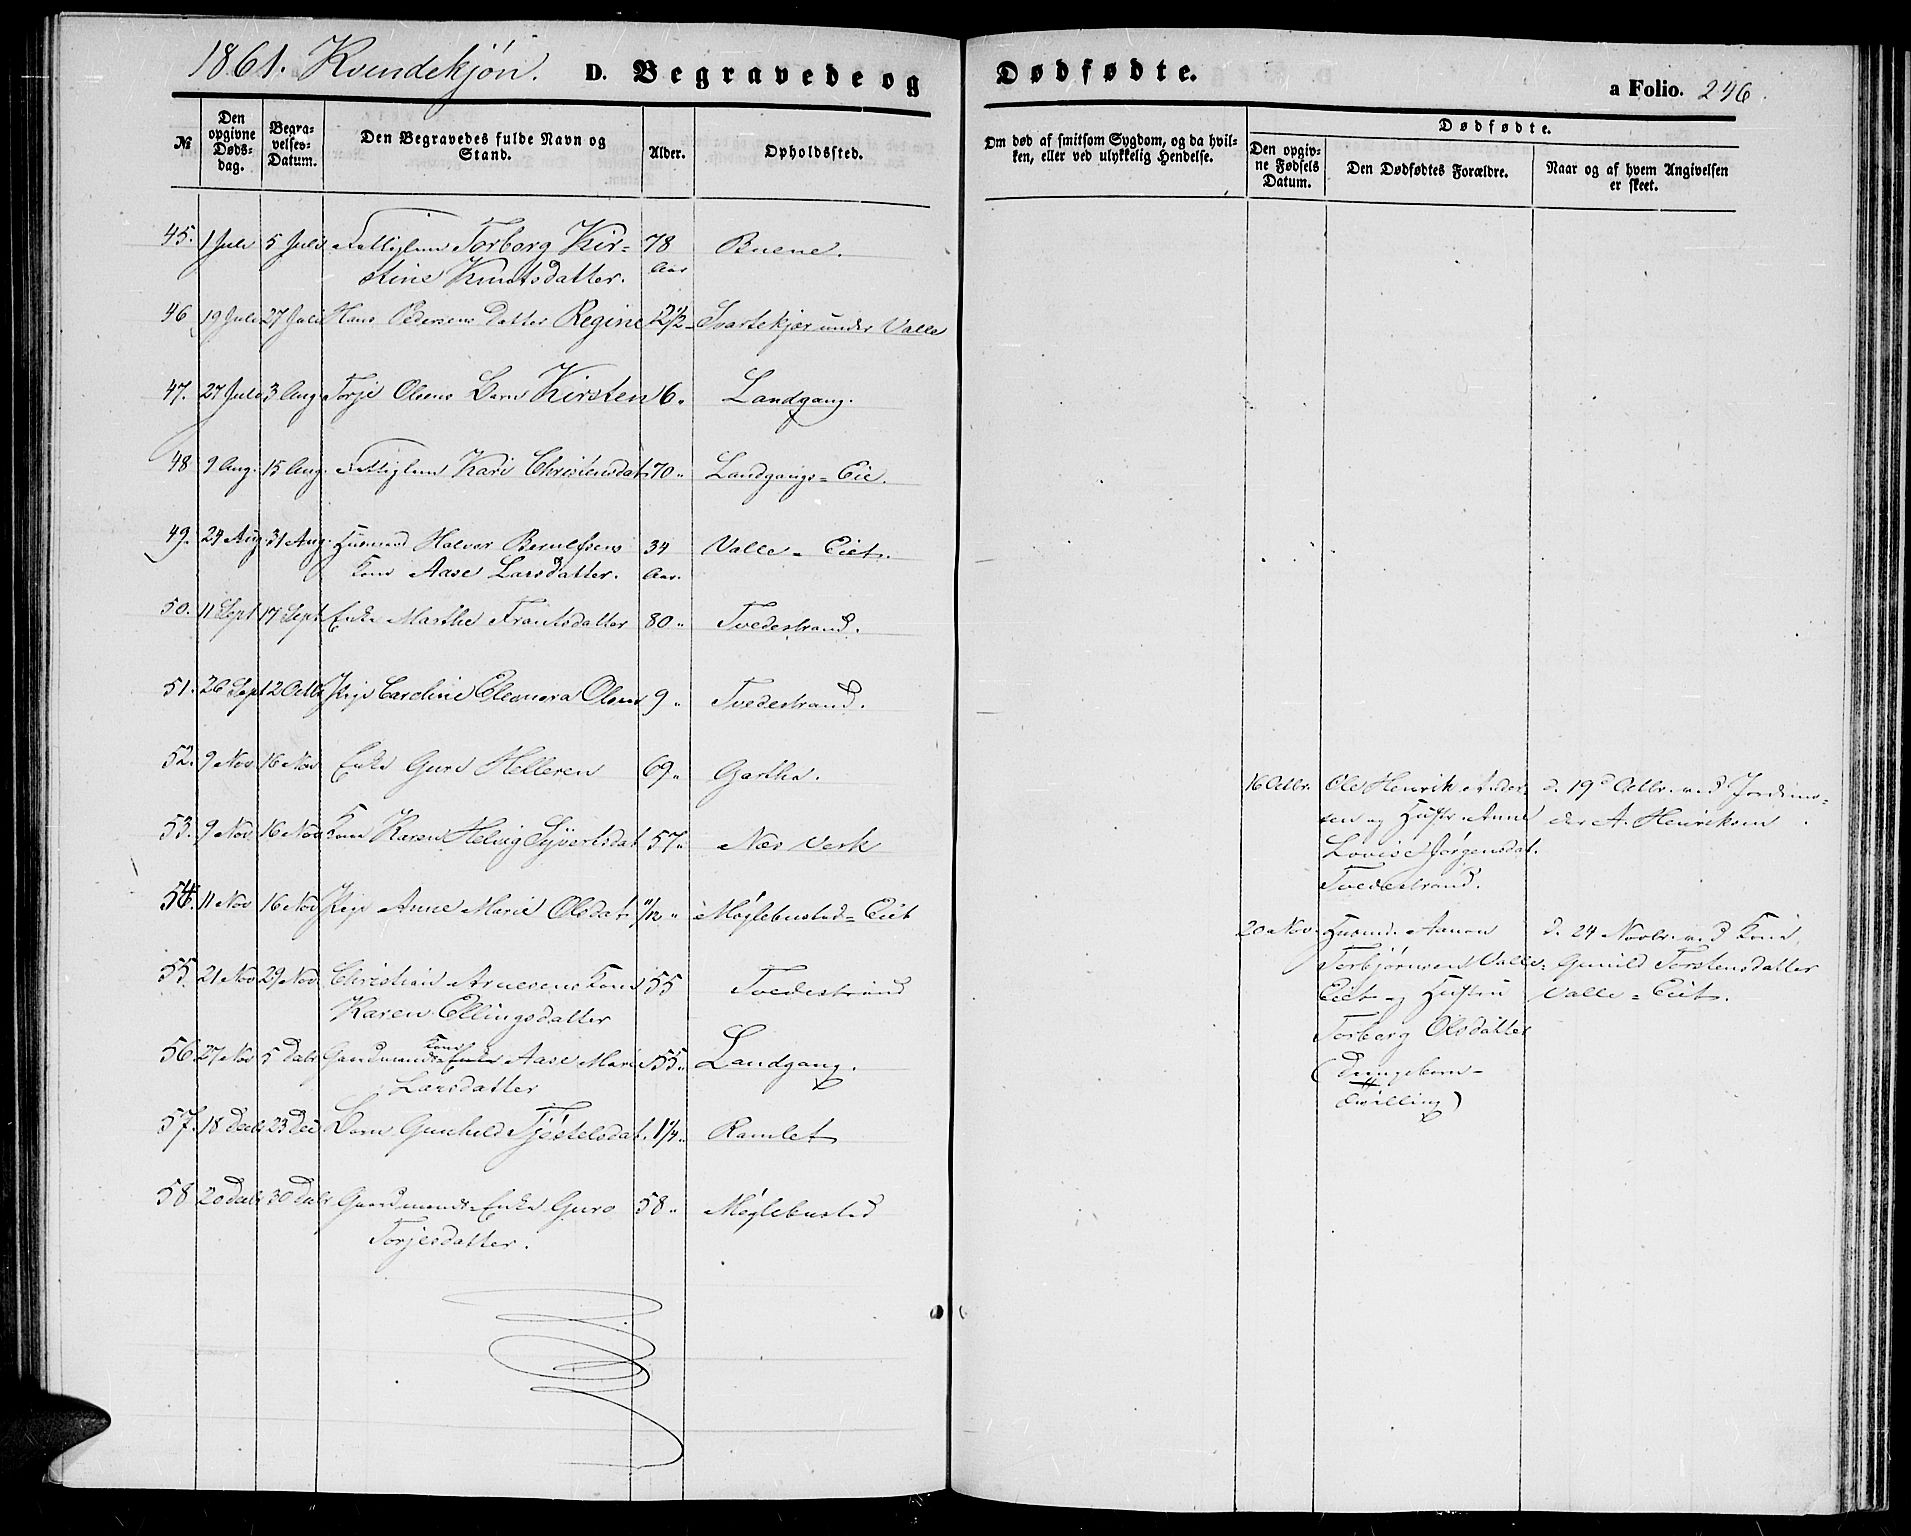 1861. Kvindekjøn. D. Begravede og Dødfødte. a Folio. 246.
№
Den opgivne Døds-dag.
Begra-velses-Datum.
Den Begravedes fulde Navn og Stand.
Alder.
Opholdssted.
Om død af smitsom Sygdom, og da hvil-ken, eller ved ulykkelig Hendelse.
Dødfødte.
Den opgiv-ne Fødsels Datum.
Den Dødfødtes Forældre.
Naar og af hvem Angivelsen er skeet.
45. 1 Juli 5 Juli Fattiglem Torborg Kir- 78 Buene.
stine Knutsdatter. Aar
46 19 Juli 27 Juli Hans Pedersens Datter Regine 2½ Svartekjær under Valle
47. 27 Juli 3 Aug. Torje Olsens Barn Kirsten 6 " Landgang.
48 9 Aug. 15 Aug. Fattiglem Kari Christensdat. 70 " Landgangs=Eie.
49. 24 Aug. 31 Aug. Husmand Halvor Berulfsens 34 Valle=Eiet.
Kone Aase Larsdatter. Aar.
50. 11 Sept 17 Sept Enke Marthe Frantsdatter 80 " Tvedestrand.
51. 26 Sept 2 Octb Pige Caroline Eleonora Olsen 9 " Tvedestrand.
52. 9 Nov. 16 Nov Enke Guro Helleren 69 " Gartha.
53. 9 Nov. 16 Nov Kone Karen Helvig Syvertsdat. 57 " Næs Verk
54. 11 Nov 16 Nov Pige Anne Marie Olsdat. 11/12 " Møglebustad=Eiet
55. 21 Nov 29 Nov. Christian Arnesens Kone 55 Tvedestrand
Karen Ellingsdatter
56. 27 Nov 5 Decbr Gaardmands Kone Enke Aase Marie 55 " Landgang.
Larsdatter
57. 18 Decbr 23 Dec Barn Gunhild Tjøstelsdat. 1¼ " Ramlet
58 20 Decbr 30 Decbr Gaardmands=Enke Guro 58 " Møglebustad
Torjesdatter.
16 Octbr. Ole Henrik Ander- d. 19de Octbr. ved Jordemo-
sen og Hustr. Anne der A. Henriksen.
Lovise Jørgensdat.
Tvedestrand.
20 Nov. Husmd. Aanon d. 24 Novbr. ved Kone
Torbjørnsen Valle= Gunild Torstensdatter
Eiet og Hustru Valle=Eiet.
Torborg Olsdatter
(Drengebarn-
Tvilling)